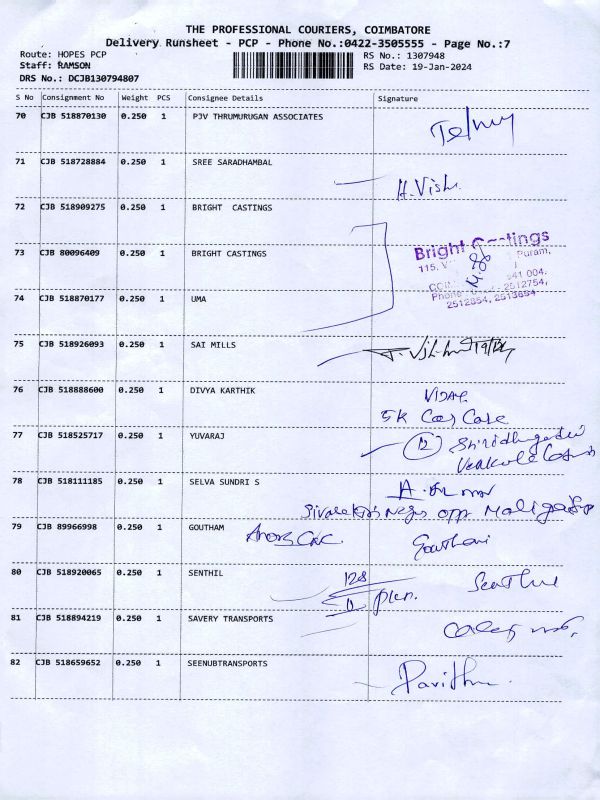 THE PROFESSIONAL COURIERS, COIMBATORE
Delivery Runsheet - PCP - Phone No.:0422-3505555 - Page No.:7
Route: HOPES PCP
RS No.: 1307948
Staff: RAMSON
RS Date: 19-Jan-2024
DRS No.: DCJB130794807
S No Consignment No Weight PCS Consignee Details Signature
70 CJB 518870130 0.250 1 PJV THRUMURUGAN ASSOCIATES
71 CJB 518728884 0.250 1 SREE SARADHAMBAL
H.Vish
72 CJB 518909275 0.250 1 BRIGHT CASTINGS
Bright Castings
115, Puram,
73 CJB 80096409 0.250 1 BRIGHT CASTINGS
641 004.
Phone 2512754,
2512854, 2513654
74 CJB 518870177 0.250 1 UMA
75 CJB 518926093 0.250 1 SAI MILLS
76 CJB 518888600 0.250 1 DIVYA KARTHIK
VIJAY
SK Car Care
77 CJB 518525717 0.250 1 YUVARAJ
78 CJB 518111185 0.250 1 SELVA SUNDRI S
79 CJB 89966998 0.250 1 GOUTHAM
CNC
80 CJB 518920065 0.250 1 SENTHIL
128
Senthil
81 CJB 518894219 0.250 1 SAVERY TRANSPORTS
82 CJB 518659652 0.250 1 SEENUBTRANSPORTS
Pavithra